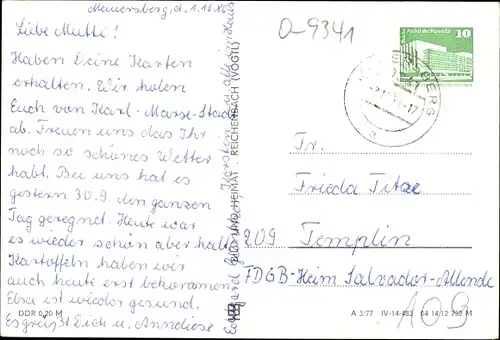 Meinersberg, d. 1.10.80
Liebe Mutti!
Haben Deine Karten
erhalten. Wir holen
Euch von Karl-Marx-Stadt
ab. Freuen uns das Ihr
noch so schönes Wetter
habt. Bei uns hat es
gestern 30.9. den ganzen
Tag geregnet. Heute war
es wieder schön aber kalt.
Kartoffeln haben wir
auch heute erst bekommen.
Ebra ist wieder gesund.
Es grüßt Dich u. Anneliese
DDR 0,20 M
BILD UND HEIMAT REICHENBACH (VOGTL)
O-9341
Palast der Republik
10
BERG
Fr.
Frieda Titze
209 Templin
FDGB-Heim Salvador-Allende
A 3/77 IV-14-483 04 14 12 752 M
109